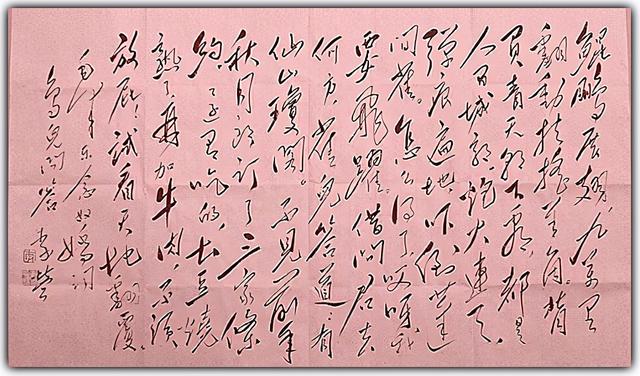 鲲鹏展翅，九万里
翻动扶摇羊角。背
负青天朝下看，都是
人间城郭，炮火连天
弹痕遍地，吓倒蓬
间雀。怎么得了，哎呀我
要飞跃。借问君去
何方，雀儿答道：有
仙山琼阁。不见前年
秋月朗订了三家条
约。还有吃的，土豆烧
熟了，再加牛肉，不须
放屁，试看天地翻覆。
毛泽东念奴娇词
鸟儿问答